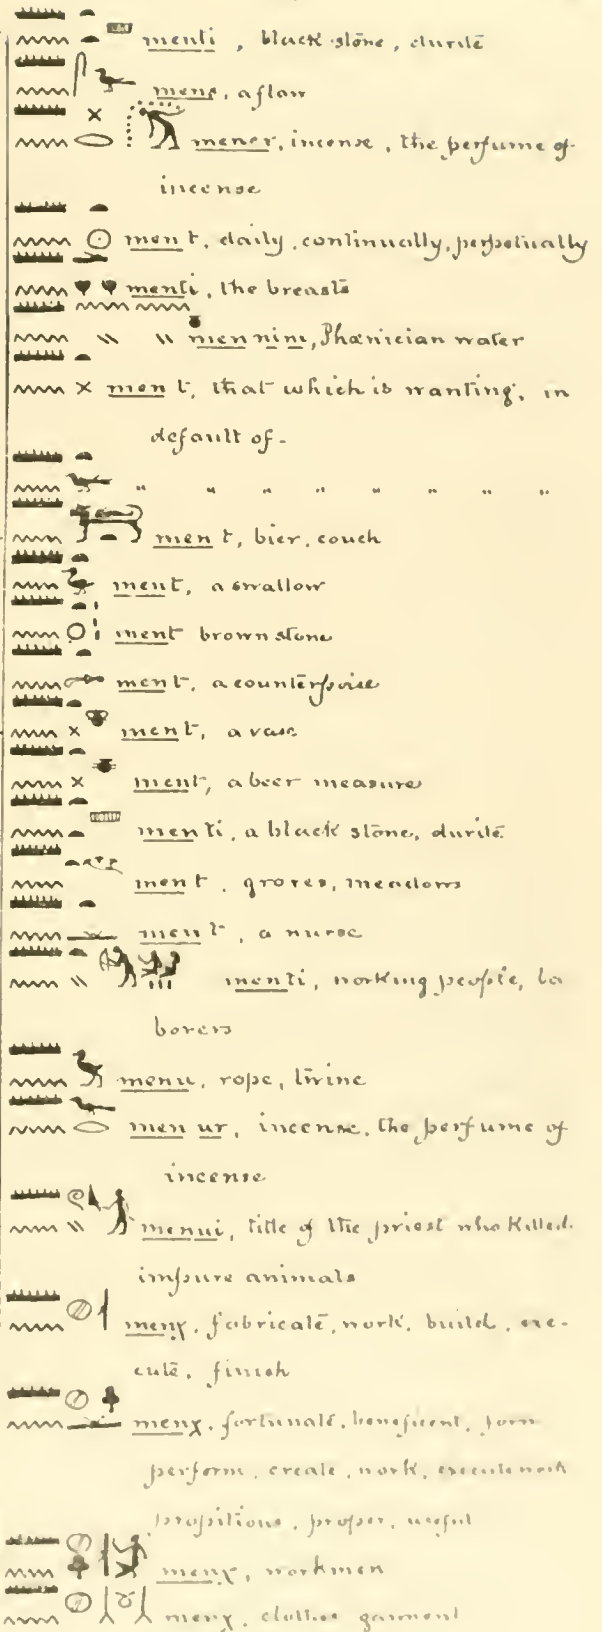 menti, black stone, durite
mens, a flaw
mener, incense, the perfume of
incense
men t, daily, continually, perpetually
menti, the breasts
men nini, Phœnician water
men t, that which is wanting, in
default of.
" " " " " " " "
men t, bier, couch
ment, a swallow
ment brown stone
men t, a counterpoise
ment, a vase
ment, a beer measure
men ti, a black stone, durite
men t, groves, meadows
men t, a nurse
menti, working people, la
borers
menu, rope, twine
men ur, incense, the perfume of
incense
menui, title of the priest who killed
impure animals
menχ, fabricate, work, build, exe-
cute, finish
menχ, fortunate, beneficent,
perform, create, work, execute work
propitious, proper, useful
menχ, workmen
menχ, clothes garment